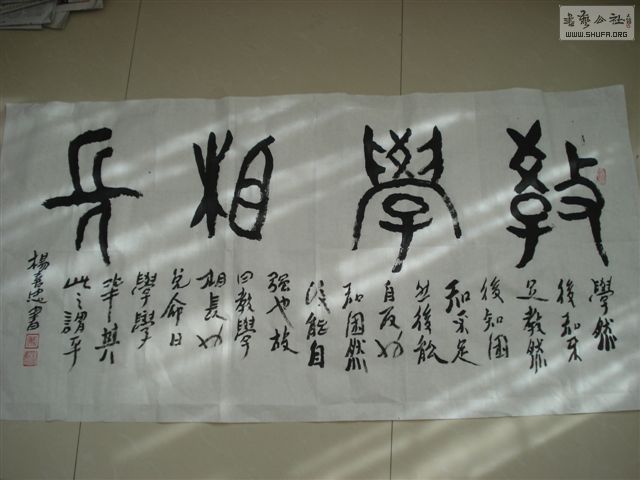 教學相長
學然
後知不
足教然
後知困
知不足
然後能
自反也
知困然
後能自
强也故
曰教學
相長也
兌命曰
學學
半其
此之謂乎
楊忠書
书艺公社
WWW.SHUFA.ORG